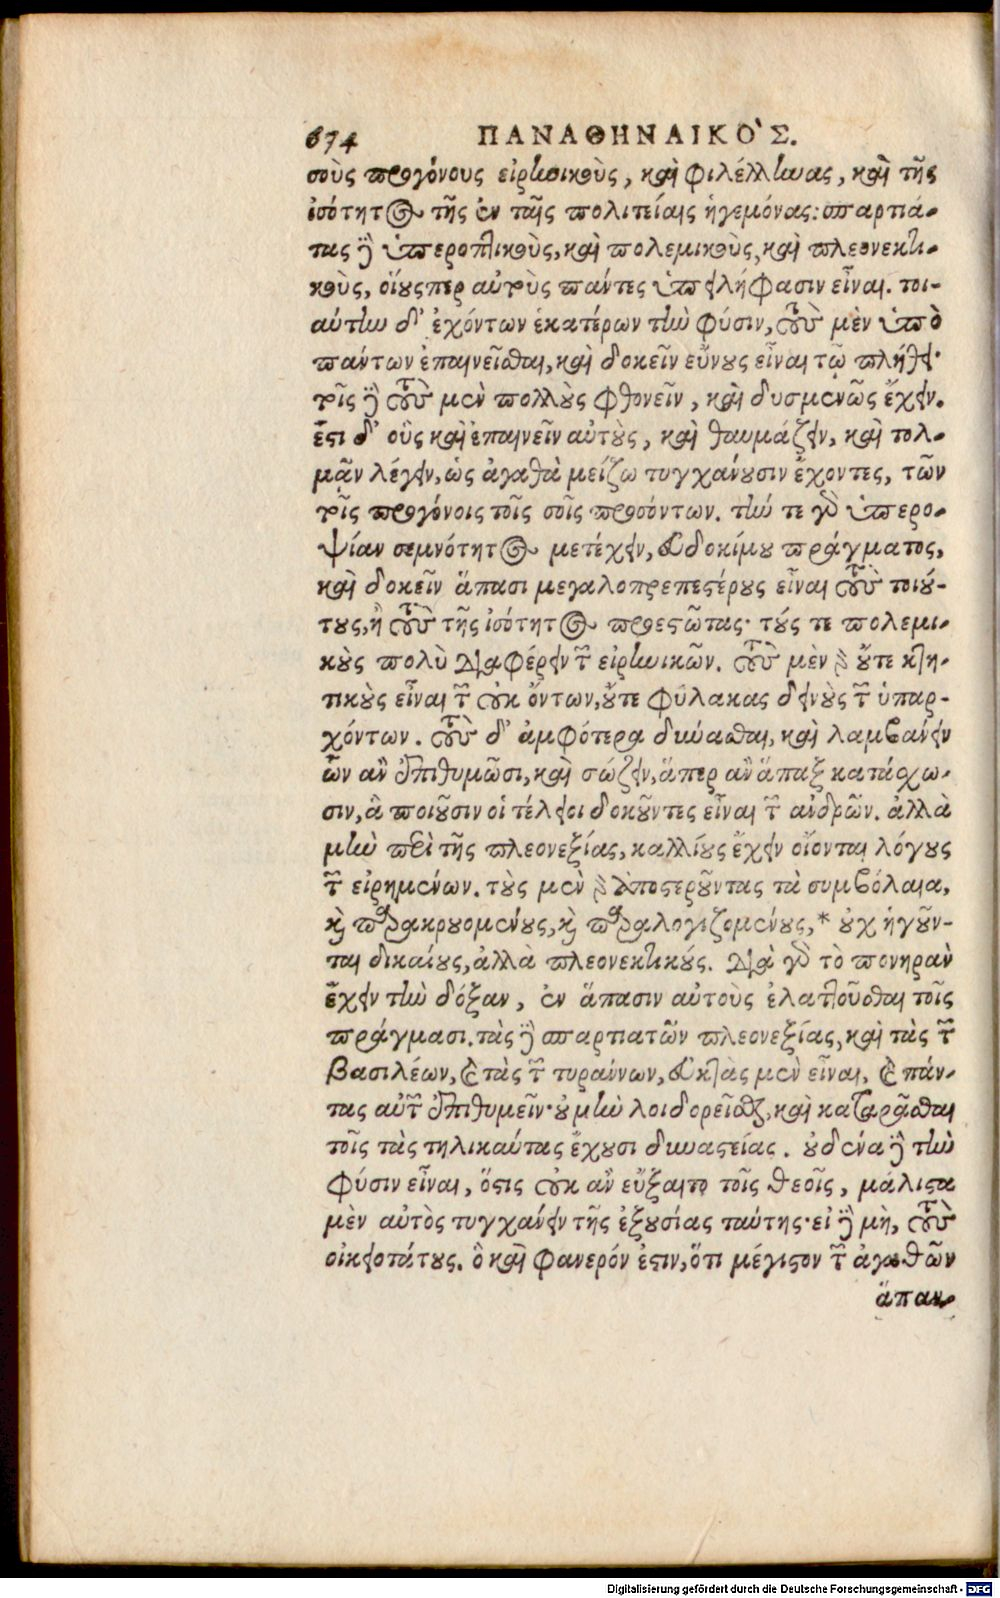 674 ΠΑΝΑΘΗΝΑΙΚΟ`Σ.
σοὺς προγόνους εἰρηνικοὺς, καὶ φιλέλληνας, καὶ τῆς
ἰσότητος τῆς ἐν ταῖς πολιτείαις ἡγεμόνας: σπαρτιά-
τας δὲ ὑπεροπτικοὺς, καὶ πολεμικοὺς, καὶ πλεονεκτι-
κοὺς, οἵους περ αὐτοὺς πάντες ὑπειλήφασιν εἶναι. τοι-
αύτην δ' ἐχόντων ἑκατέρων τὴν φύσιν, τοὺς μὲν ὑπὸ
πάντων ἐπαινεῖσθαι, καὶ δοκεῖν εὔνους εἶναι τῷ πλήθει·
τοῖς δὲ τοὺς μὲν πολλοὺς φθονεῖν, καὶ δυσμενῶς ἔχειν.
ἔστι δ' οὓς καὶ ἐπαινεῖν αὐτοὺς, καὶ θαυμάζειν, καὶ τολ-
μᾶν λέγειν, ὡς ἀγαθὰ μείζω τυγχάνουσιν ἔχοντες, τῶν
τοῖς προγόνοις τοῖς σοῖς προσόντων. τήν τε γὰρ ὑπερο-
ψίαν σεμνότητος μετέχειν, εὐδοκίμου πράγματος,
καὶ δοκεῖν ἅπασι μεγαλοπρεπεστέρους εἶναι τοὺς τοιού-
τους, ἢ τοὺς τῆς ἰσότητος προεστῶτας· τούς τε πολεμι-
κοὺς πολὺ διαφέρειν τῶν εἰρηνικῶν. τοὺς μὲν γὰρ οὔτε κτη-
τικοὺς εἶναι τῶν οὐκ ὄντων, οὔτε φύλακας δεινοὺς τῶν ὑπαρ-
χόντων. τοὺς δ' ἀμφότερα δύνασθαι, καὶ λαμβάνειν
ὧν ἂν ἐπιθυμῶσι, καὶ σώζειν, ἅπερ ἂν ἅπαξ κατάσχω-
σιν, ἃ ποιοῦσιν οἱ τέλειοι δοκοῦντες εἶναι τῶν ἀνδρῶν. ἀλλὰ
μὴν περὶ τῆς πλεονεξίας, καλλίους ἔχειν οἴονται λόγους
τῶν εἰρημένων. τοὺς μὲν γὰρ ἀποστεροῦντας τὰ συμβόλαια,
καὶ παρακρουομένους, καὶ παραλογιζομένους,* οὐχ ἡγοῦν-
ται δικαίους, ἀλλὰ πλεονεκτικούς. διὰ γὰρ τὸ πονηρὰν
ἔχειν τὴν δόξαν, ἐν ἅπασιν αὐτοὺς ἐλαττοῦσθαι τοῖς
πράγμασι. τὰς δὲ σπαρτιατῶν πλεονεξίας, καὶ τὰς τῶν
βασιλέων, καὶ τὰς τῶν τυράννων, εὐκτὰς μὲν εἶναι, καὶ πάν-
τας αὐτῶν ἐπιθυμεῖν· οὐ μὴν λοιδορεῖσθαι, καὶ καταρᾶσθαι
τοῖς τὰς τηλικαύτας ἔχουσι δυναστείας. οὐδένα δὲ τὴν
φύσιν εἶναι, ὅστις οὐκ ἂν εὔξαιτο τοῖς θεοῖς, μάλιστα
μὲν αὐτὸς τυγχάνειν τῆς ἐξουσίας ταύτης· εἰ δὲ μὴ, τοὺς
οἰκειοτάτους. ὃ καὶ φανερόν ἐστιν, ὅτι μέγιστον τῶν ἀγαθῶν
ἅπαν-
Digitalisierung gefördert durch die Deutsche Forschungsgemeinschaft - DFG